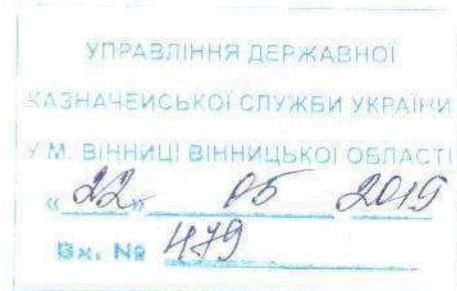 УПРАВЛІННЯ ДЕРЖАВНОЇ
КАЗНАЧЕЙСЬКОЇ СЛУЖБИ УКРАЇНИ
У М. ВІННИЦІ ВІННИЦЬКОЇ ОБЛАСТІ
«22» 05 2019
Вх. № 479